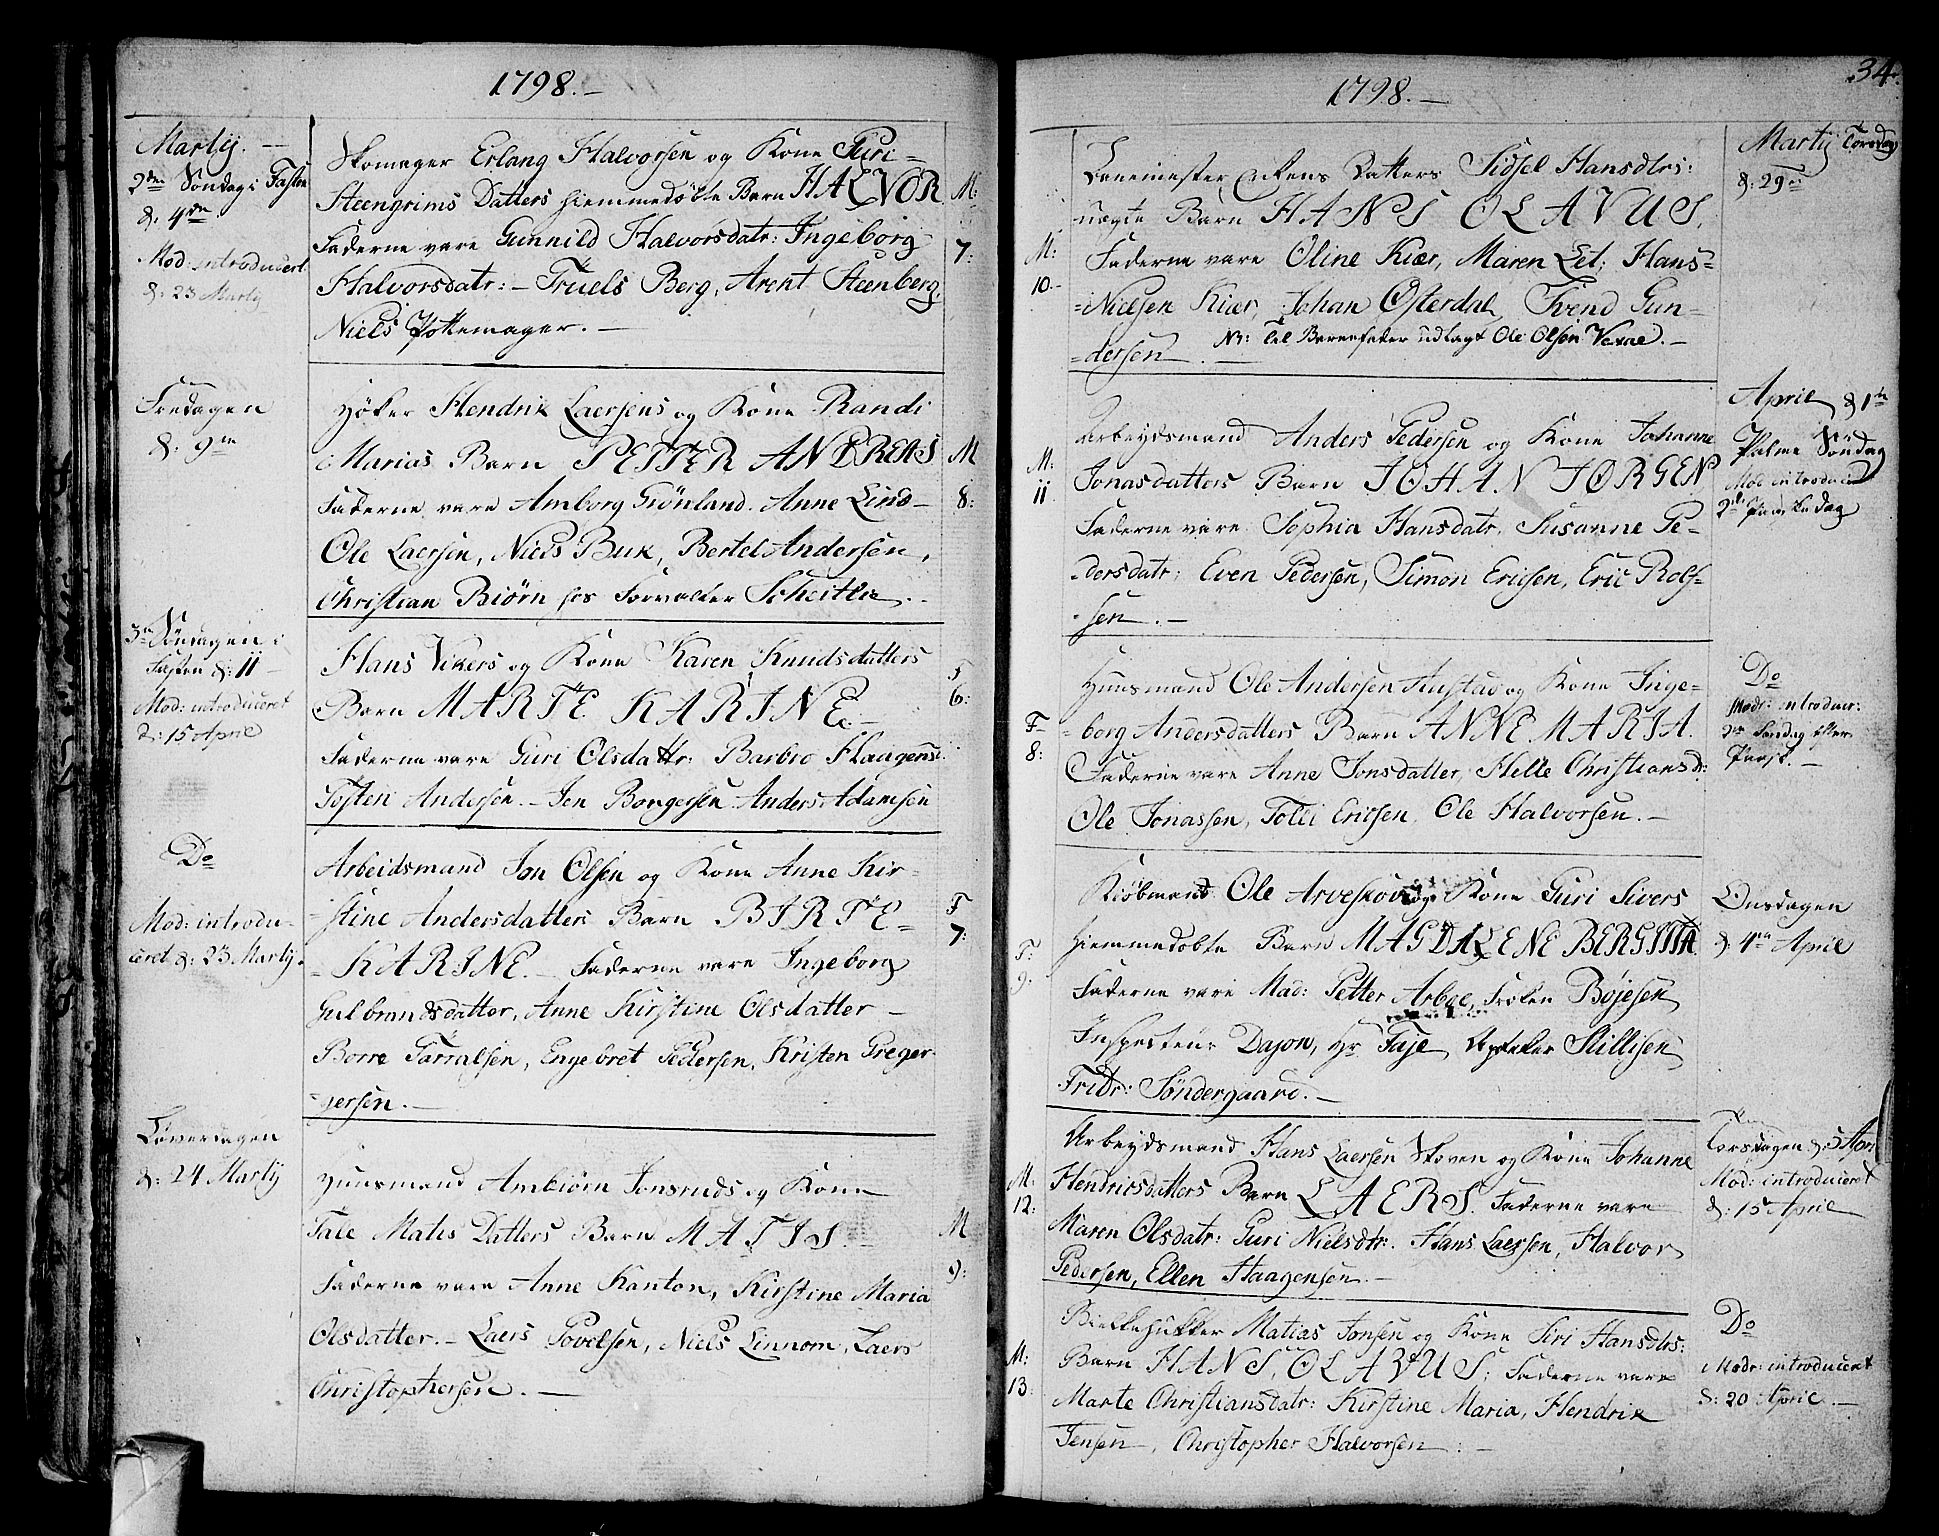 1798.—
Martij.—
2den Søndag i Fasten
d: 4de
Mod: introducert
d: 23 Martij
Skomager Erlang Halvorsen og Kone Guri
Steengrims Datters hiemmedøbte Barn HALVOR
Faderne vare Gunnild Halvorsdatr: Ingeborg
Halvorsdatr:— Truels Berg, Arent Steenberg,
Niels Pottemager.—
M:
7:
Fredagen
d: 9de
Høker Hendrik Laersens og Kone Randi
Marias Barn PETTER ANDREAS
Faderne vare Amborg Grönland. Anne Lind—
Ole Laersen, Niels Buk, Bertel Andersen,
Christian Biörn hos Forvalter Scheitlie.
M
8:
3de Søndagen i
Fasten d: 11
Mod: introduceret
d: 15 April
Hans Vikers og Kone Karen Knudsdatters
Barn MARTE KARINE.—
Faderne vare Guri Olsdattr: Barbro Haagens:
Tosten Andersen.— Jen Borgersen Anders Adamsen
F
6:
Do
Mod: introdu-
ceret d: 23 Martij.
Arbeidsmand Jon Olsen og Kone Anne Kir-
stine Andersdatters Barn BIRTE=
=KARINE.— Faderne vare Ingeborg
Gulbrandsdatter, Anne Kirstine Olsdatter—
Borre Tarralsen, Engebret Pedersen, Kristen Greger-
gersen.—
F
7:
Löverdagen
d: 24 Martij
Huusmand Ambiörn Jonsruds og Kone
Tale Matis Datters Barn MATIS.—
Faderne vare Anne Kanton, Kirstine Maria
Olsdatter.— Laers Povelsen, Niels Linnom, Laers
Christophersen.—
M
9:
34.
1798.—
M:
10.—
Sidsel Hansdtrs:
uægte Barn HANS OLAVUS,
Faderne vare Oline Kiær, Maren Let, Hans=
=Nielsen Kiær, Johan Österdal, Svend Gun=
=dersen.— Nb: til Barnefader udlagt Ole Olsen Vaxne.—
Martij Torsdag
d: 29de
M:
11
Arbeydsmand Anders Pedersen og Kone Johanne
Jonasdatters Barn JOHAN JÖRGEN
Faderne vare Sophia Hansdatr, Susanne Pe-
dersdatr; Even Pedersen, Simon Ericsen, Eric Rolf-
sen.—
April d 1te
Palme Søndag
Mod introducer
2d Paaskedag
F
8:
Huusmand Ole Andersen Austad og Kone Inge-
borg Andersdatters Barn ANNE MARIA.
Faderne vare Anne Jonsdatter, Helle Christiansd:
Ole Jonassen, Tolli Ericsen, Ole Halvorsen.—
Do
Modr: introducr:
Søndag efter
Paask.—
F:
9:
Kiöbmand Ole Arveskov og Kone Guri Sivers
hiemmedøbte Barn MAGDALENE BERGITTA.
Faderne vare Mad: Petter Arboe, Frøken Böjesen
Inspecteur Dajon, Hr Faje, Apoteker Stillisen
Fridr: Söndergaard.—
Onsdagen
d: 4de April
M:
12:
Arbeydsmand Hans Laersen Skoven og Kone Johanne
Hendricsdatters Barn LAERS. Faderne vare
Maren Olsdatr: Guri Nielsdtr: Hans Laersen, Halvor
Pedersen, Ellen Haagensen.—
Torsdagen d: 5 April
Mod: introduceret
d: 15 April
M:
13:
Bielkehukker Matias Jonsen og Kone Siri Hansdtrs:
Barn HANS, OLAVUS; Faderne vare
Marte Christiansdatr: Kirstine Maria, Hendrik
Jensen, Christopher Halvorsen:—
Do
Modr: introduceret
d: 20 April.—